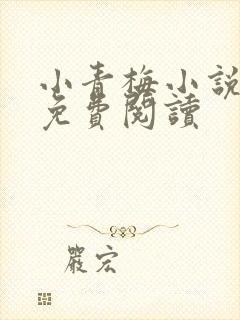 小青梅小說
免費閱讀
嚴宏